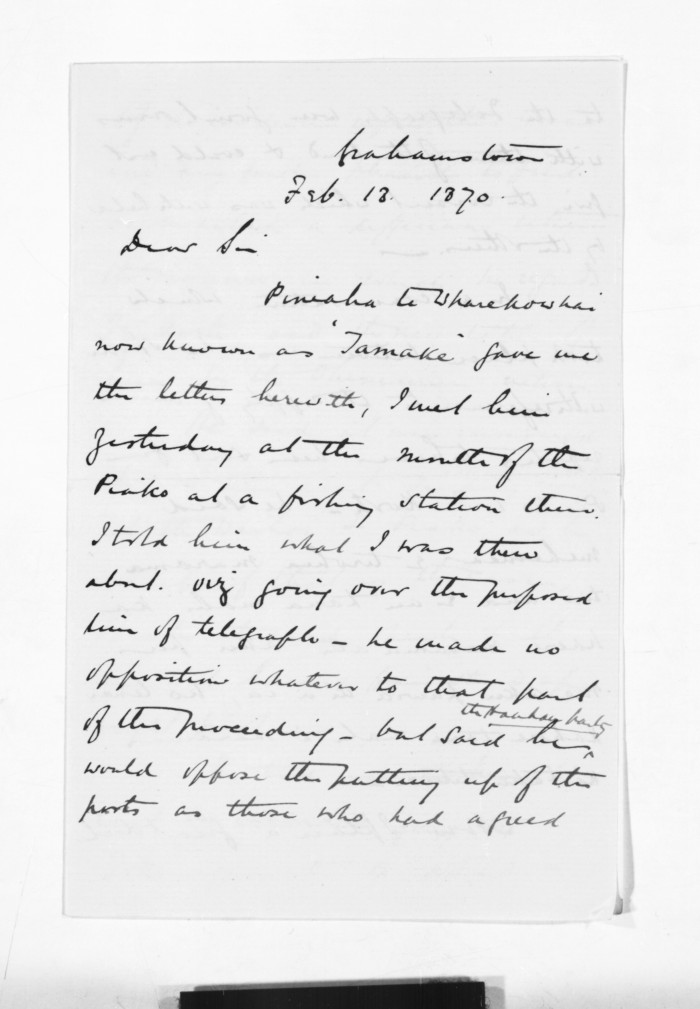 Grahamstown
Feb. 13. 1870.
Dear Sir
Pineaha te Wharekowhai
now known as "Tamake" gave me
the letters herewith, I met him
yesterday at the mouth of the
Piako at a fishing station there.
I told him what I was there
about. viz going over the proposed
line of telegraph - he made no
opposition whatever to that part
of the proceeding - but said he,
the Hauhau party
would oppose the putting up of the
posts as those who had agreed